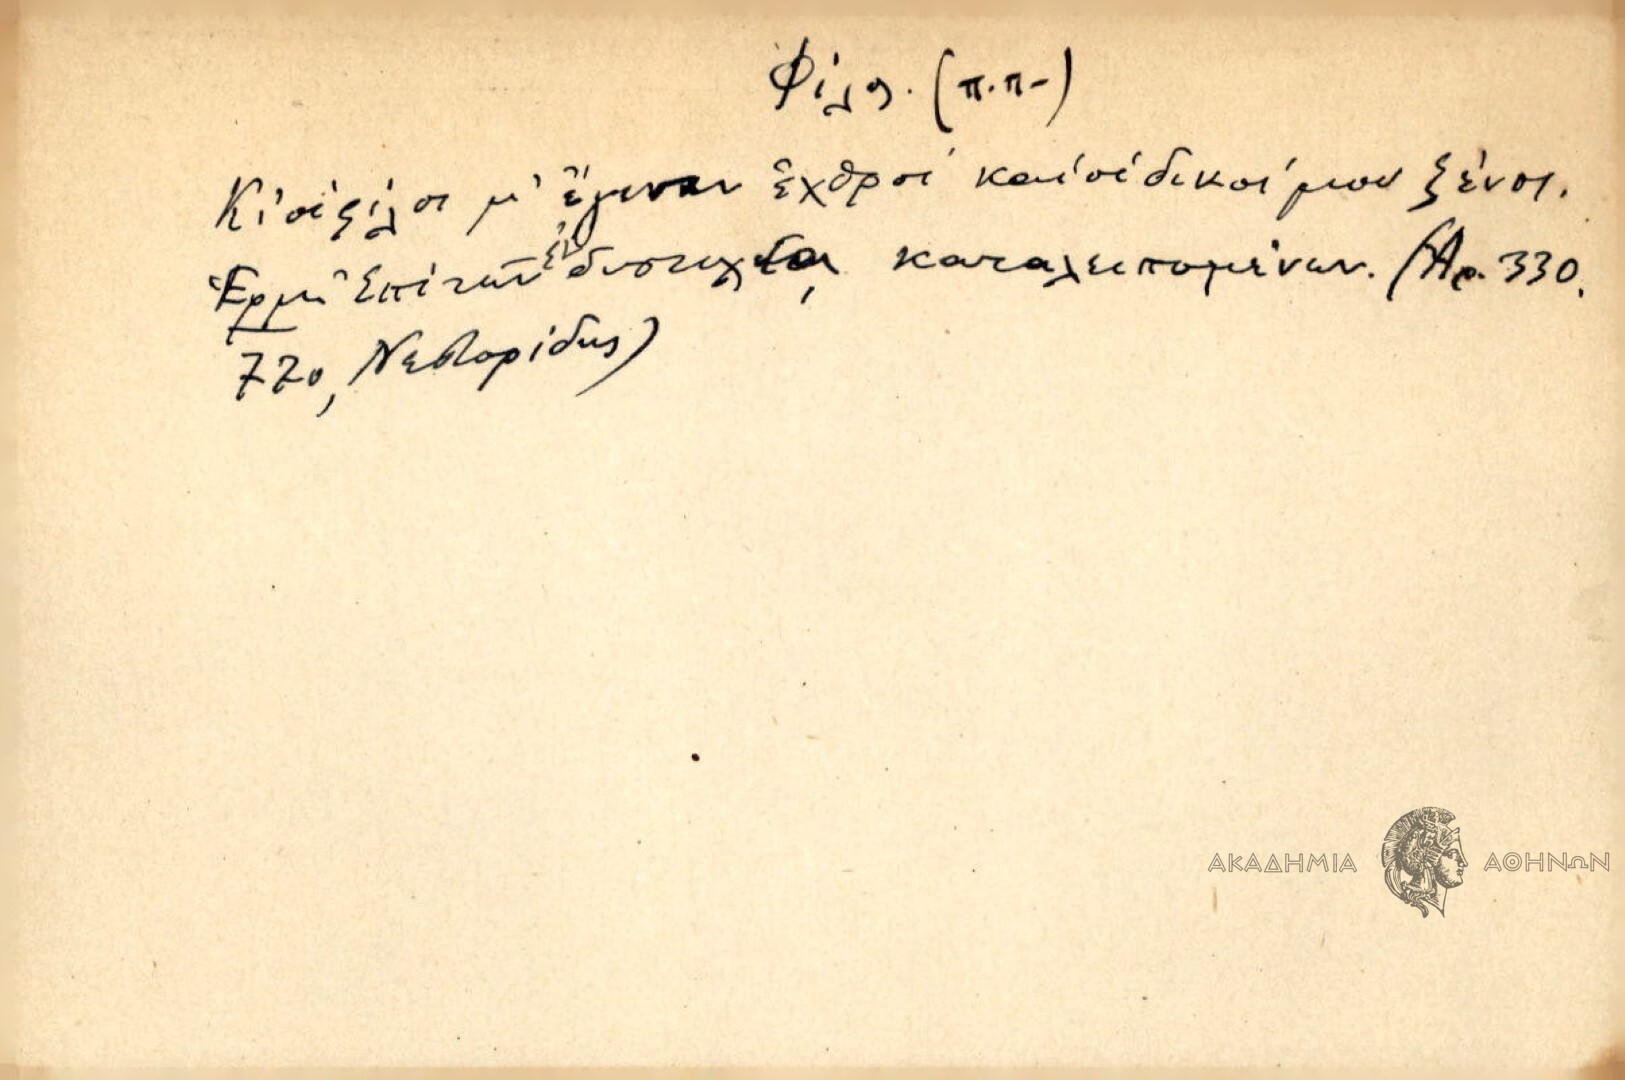 Φίλος. (π.π-)
Κι' οἱ φίλοι μ' ἔγιναν ἐχθροί και οἱ δικοί μου ξένοι.
Ἑρμ. Ἐπί τῶν ἐν δυστυχίᾳ καταλειπομένων. (Ἀρ. 330.
77υ, Νεστορίδης)
ΑΚΑΔΗΜΙΑ ΑΘΗΝΩΝ